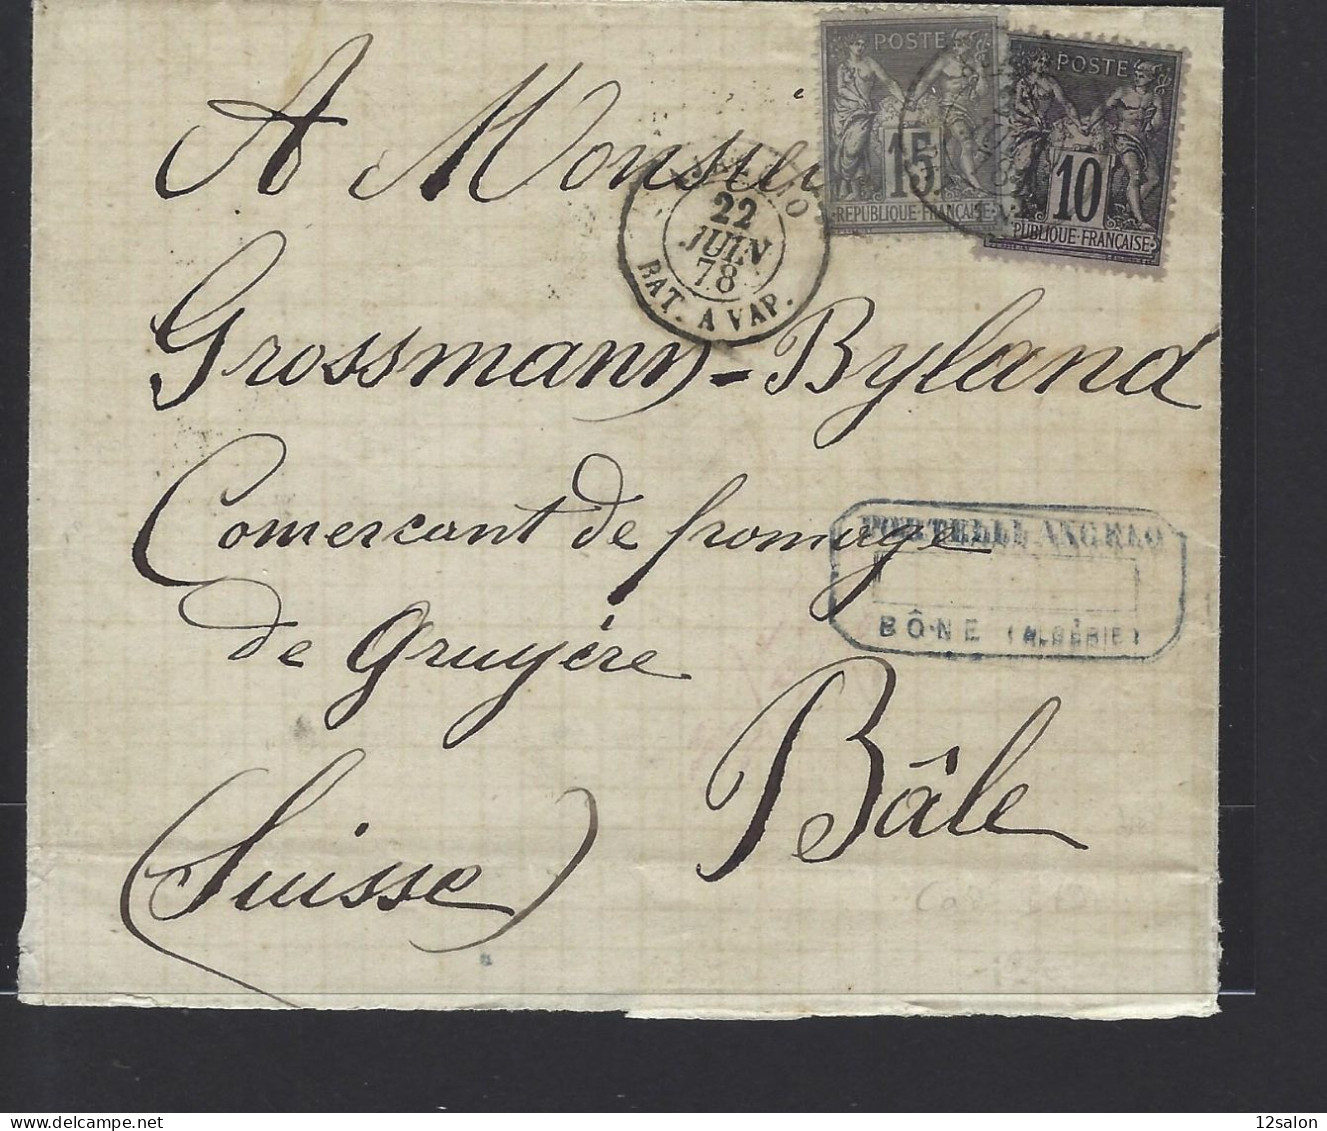 POSTE
15
REPUBLIQUE FRANÇAISE
POSTE
10
PUBLIQUE FRANÇAISE
A Monsieur
22
JUIN
78
BAT. A VAP.
Grossmann-Byland
Comerçant de fromage
de Gruyère
PORTELLI ANGELO
BÔNE (ALGÉRIE)
(Suisse)
Bâle
12salon